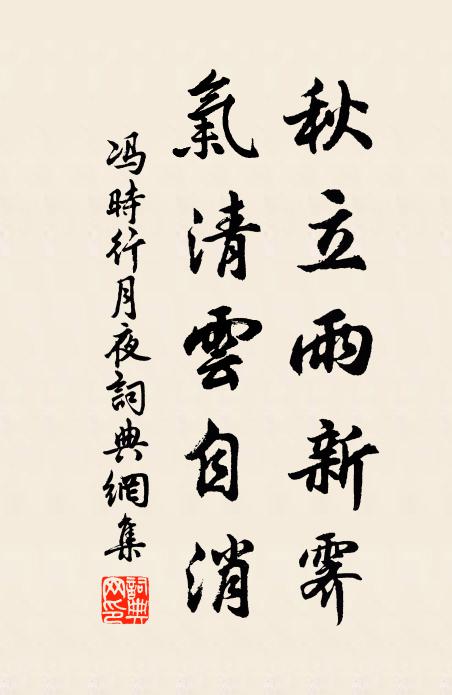 秋立雨新霽
氣清雲自消
冯時行月夜詞典網集
詞典网印